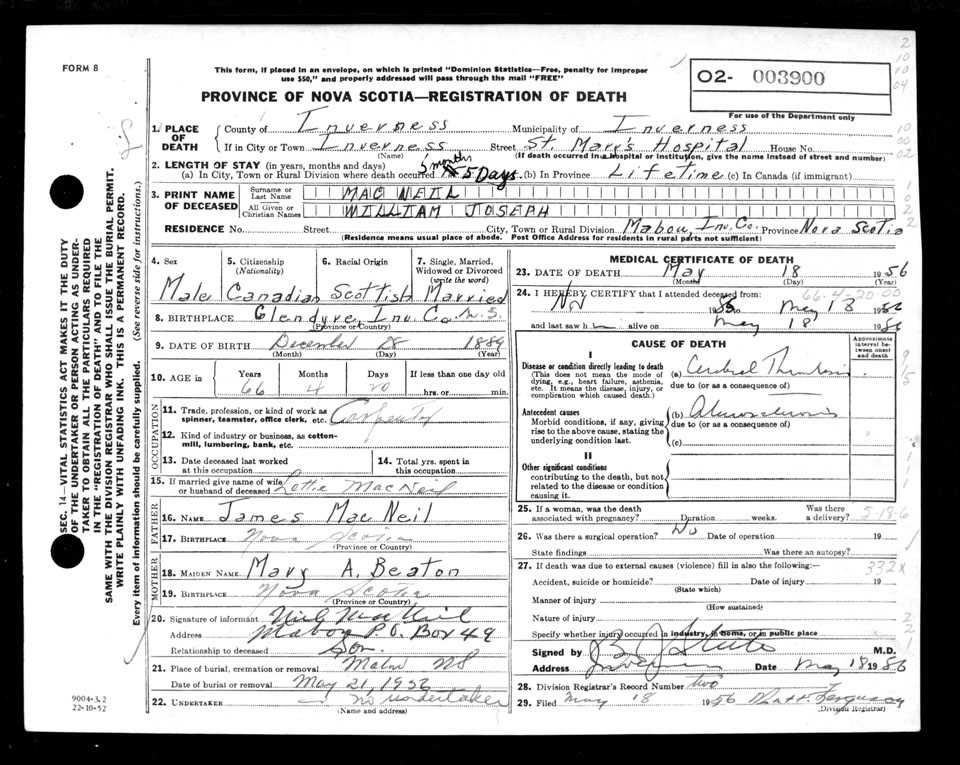 FORM 8
This form, if placed in an envelope, on which is printed "Dominion Statistics—Free, penalty for improper
use $50," and properly addressed will pass through the mail "FREE"
02- 003900
PROVINCE OF NOVA SCOTIA—REGISTRATION OF DEATH
For use of the Department only
1. PLACE OF DEATH
County of Inverness Municipality of Inverness
If in City or Town Inverness Street St. Mary's Hospital House No.
(Name) (If death occurred in a hospital or institution, give the name instead of street and number)
2. LENGTH OF STAY (in years, months and days)
(a) In City, Town or Rural Division where death occurred 5 Days. (b) In Province Lifetime (c) In Canada (if immigrant)
3. PRINT NAME OF DECEASED
Surname or Last Name MAC NEIL
All Given or Christian Names WILLIAM JOSEPH
RESIDENCE No. Street City, Town or Rural Division Mabou, Inv. Co. Province Nova Scotia
(Residence means usual place of abode. Post Office Address for residents in rural parts not sufficient)
4. Sex Male
5. Citizenship (Nationality) Canadian
6. Racial Origin Scottish
7. Single, Married, Widowed or Divorced (write the word) Married
8. BIRTHPLACE Glendyre, Inv. Co. N.S.
(Province or Country)
9. DATE OF BIRTH December 28 1889
(Month) (Day) (Year)
10. AGE in Years Months Days If less than one day old
66 4 20 hrs. or min.
OCCUPATION
11. Trade, profession, or kind of work as spinner, teamster, office clerk, etc. Carpenter
12. Kind of industry or business, as cotton-mill, lumbering, bank, etc.
13. Date deceased last worked at this occupation
14. Total yrs. spent in this occupation
15. If married give name of wife or husband of deceased Lottie MacNeil
FATHER
16. NAME James MacNeil
17. BIRTHPLACE Nova Scotia
(Province or Country)
MOTHER
18. MAIDEN NAME Mary A. Beaton
19. BIRTHPLACE Nova Scotia
(Province or Country)
20. Signature of informant
Address Mabou P.O. Box 49
Relationship to deceased Son.
21. Place of burial, cremation or removal Mabou NS
Date of burial or removal May 21, 1956
22. UNDERTAKER no undertaker
(Name and address)
MEDICAL CERTIFICATE OF DEATH
23. DATE OF DEATH May 18 1956
(Month) (Day) (Year)
66-4-20-00
24. I HEREBY CERTIFY that I attended deceased from:
May 18 1956
and last saw h alive on May 18 1956
CAUSE OF DEATH
Approximate interval between onset and death
I
Disease or condition directly leading to death
(This does not mean the mode of dying, e.g., heart failure, asthenia, etc. It means the disease, injury, or complication which caused death.)
(a) Cerebral Thrombosis
due to (or as a consequence of)
Antecedent causes
Morbid conditions, if any, giving rise to the above cause, stating the underlying condition last.
(b)
due to (or as a consequence of)
(c)
II
Other significant conditions contributing to the death, but not related to the disease or condition causing it.
25. If a woman, was the death associated with pregnancy? Duration weeks. Was there a delivery? 5-18-6
26. Was there a surgical operation? No Date of operation 19
State findings Was there an autopsy?
27. If death was due to external causes (violence) fill in also the following:— 332x
Accident, suicide or homicide? Date of injury 19
(State which)
Manner of injury
(How sustained)
Nature of injury
Specify whether injury occurred in industry, in home, or in public place
Signed by M.D.
Address Inverness Date May 18 1956
28. Division Registrar's Record Number two
29. Filed May 18 1956 Matt. Ferguson
(Division Registrar)
SEC. 14—VITAL STATISTICS ACT MAKES IT THE DUTY
OF THE UNDERTAKER OR PERSON ACTING AS UNDERTAKER
TO OBTAIN ALL THE PARTICULARS REQUIRED
IN THE "REGISTRATION OF DEATH" AND TO FILE THE
SAME WITH THE DIVISION REGISTRAR WHO SHALL ISSUE THE BURIAL PERMIT.
WRITE PLAINLY WITH UNFADING INK. THIS IS A PERMANENT RECORD.
Every item of information should be carefully supplied. (See reverse side for instructions.)
9004-3.2
22-10-52